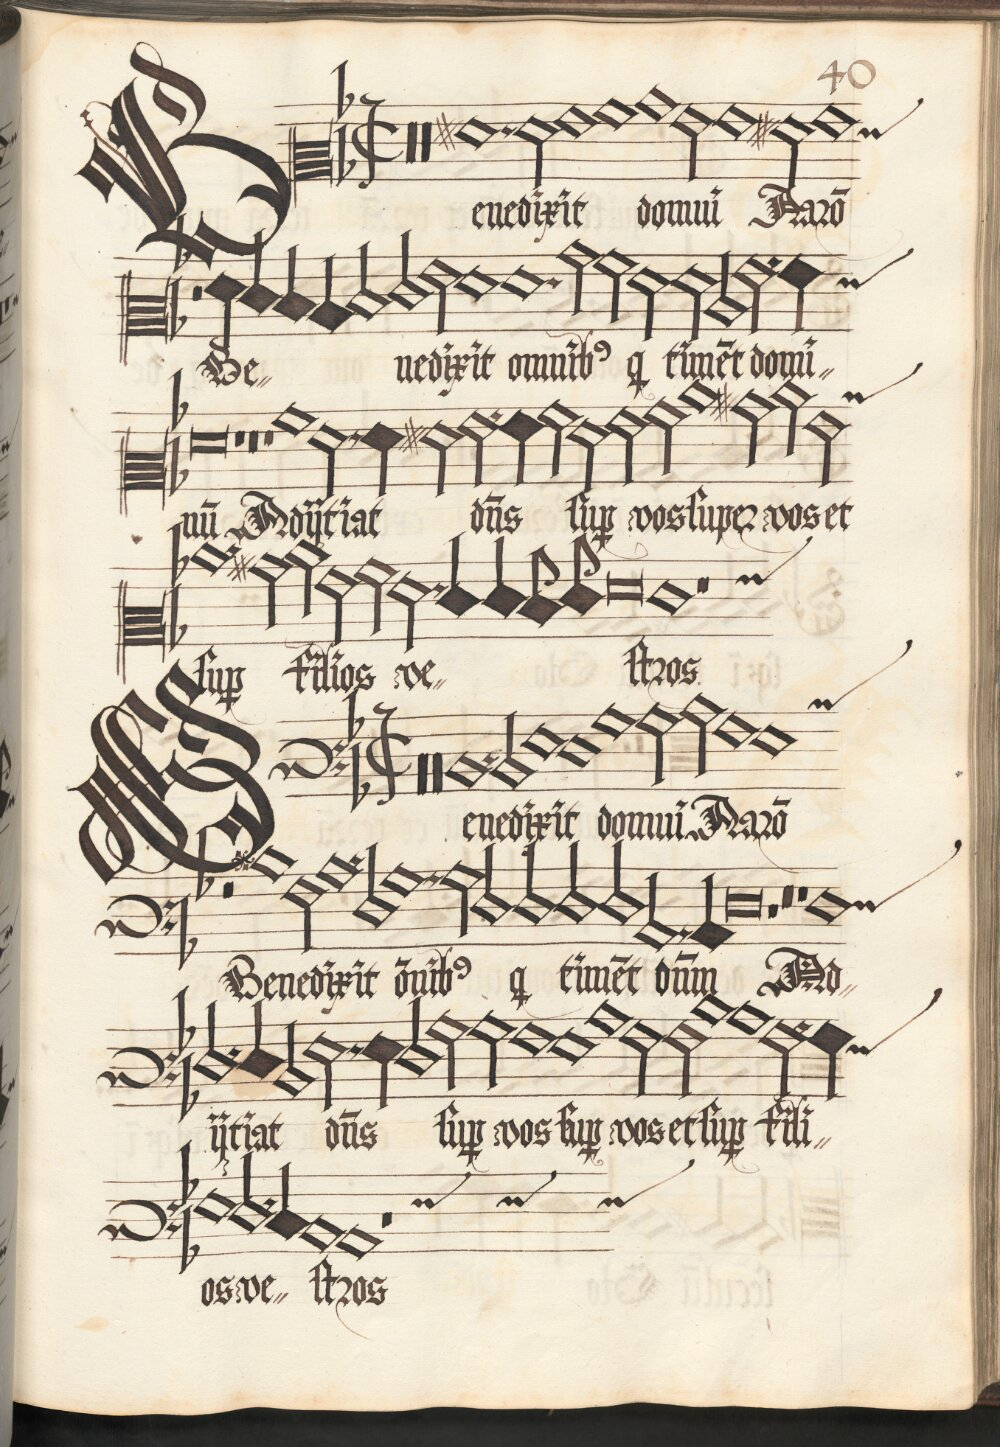 40
Benedixit domui Aarō
Be„ nedixit omnibꝰ q timēt domi„
nū Adijciat dn̄s suꝑ vos super vos et
suꝑ filios ve„ stros
Benedixit domui Aarō
Benedixit ōnibꝰ q timēt dn̄m Ad„
ijciat dn̄s suꝑ vos suꝑ vos et suꝑ fili„
os ve„ stros